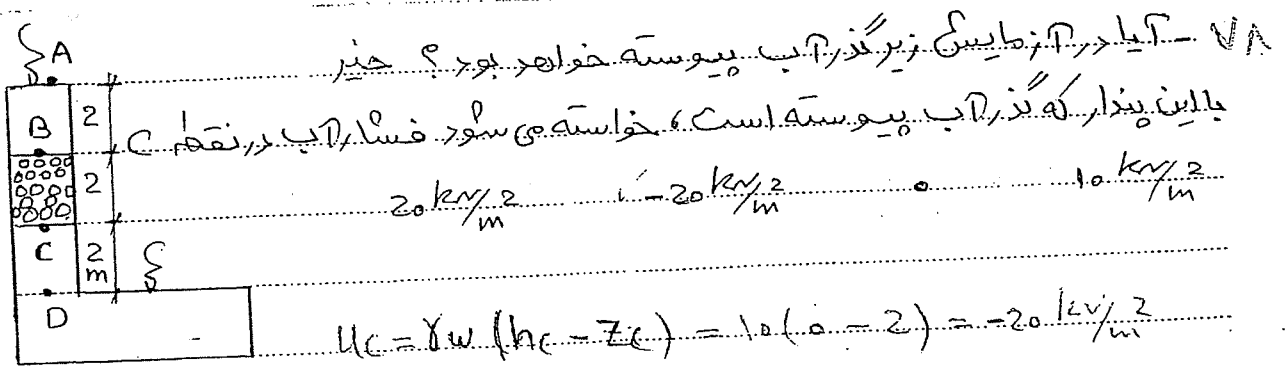 ۷۸ - آیا در آزمایش زیر گذر آب پیوسته خواهد بود ؟ خیر
با این پندار که گذر آب پیوسته است، خواسته می شود فشار آب در نقطه C
20 kN/m² -20 kN/m² 0 10 kN/m²
u_C = γw (h_C - Z_C) = 10 (0 - 2) = -20 kN/m²
A
B 2
2
C 2 m
D